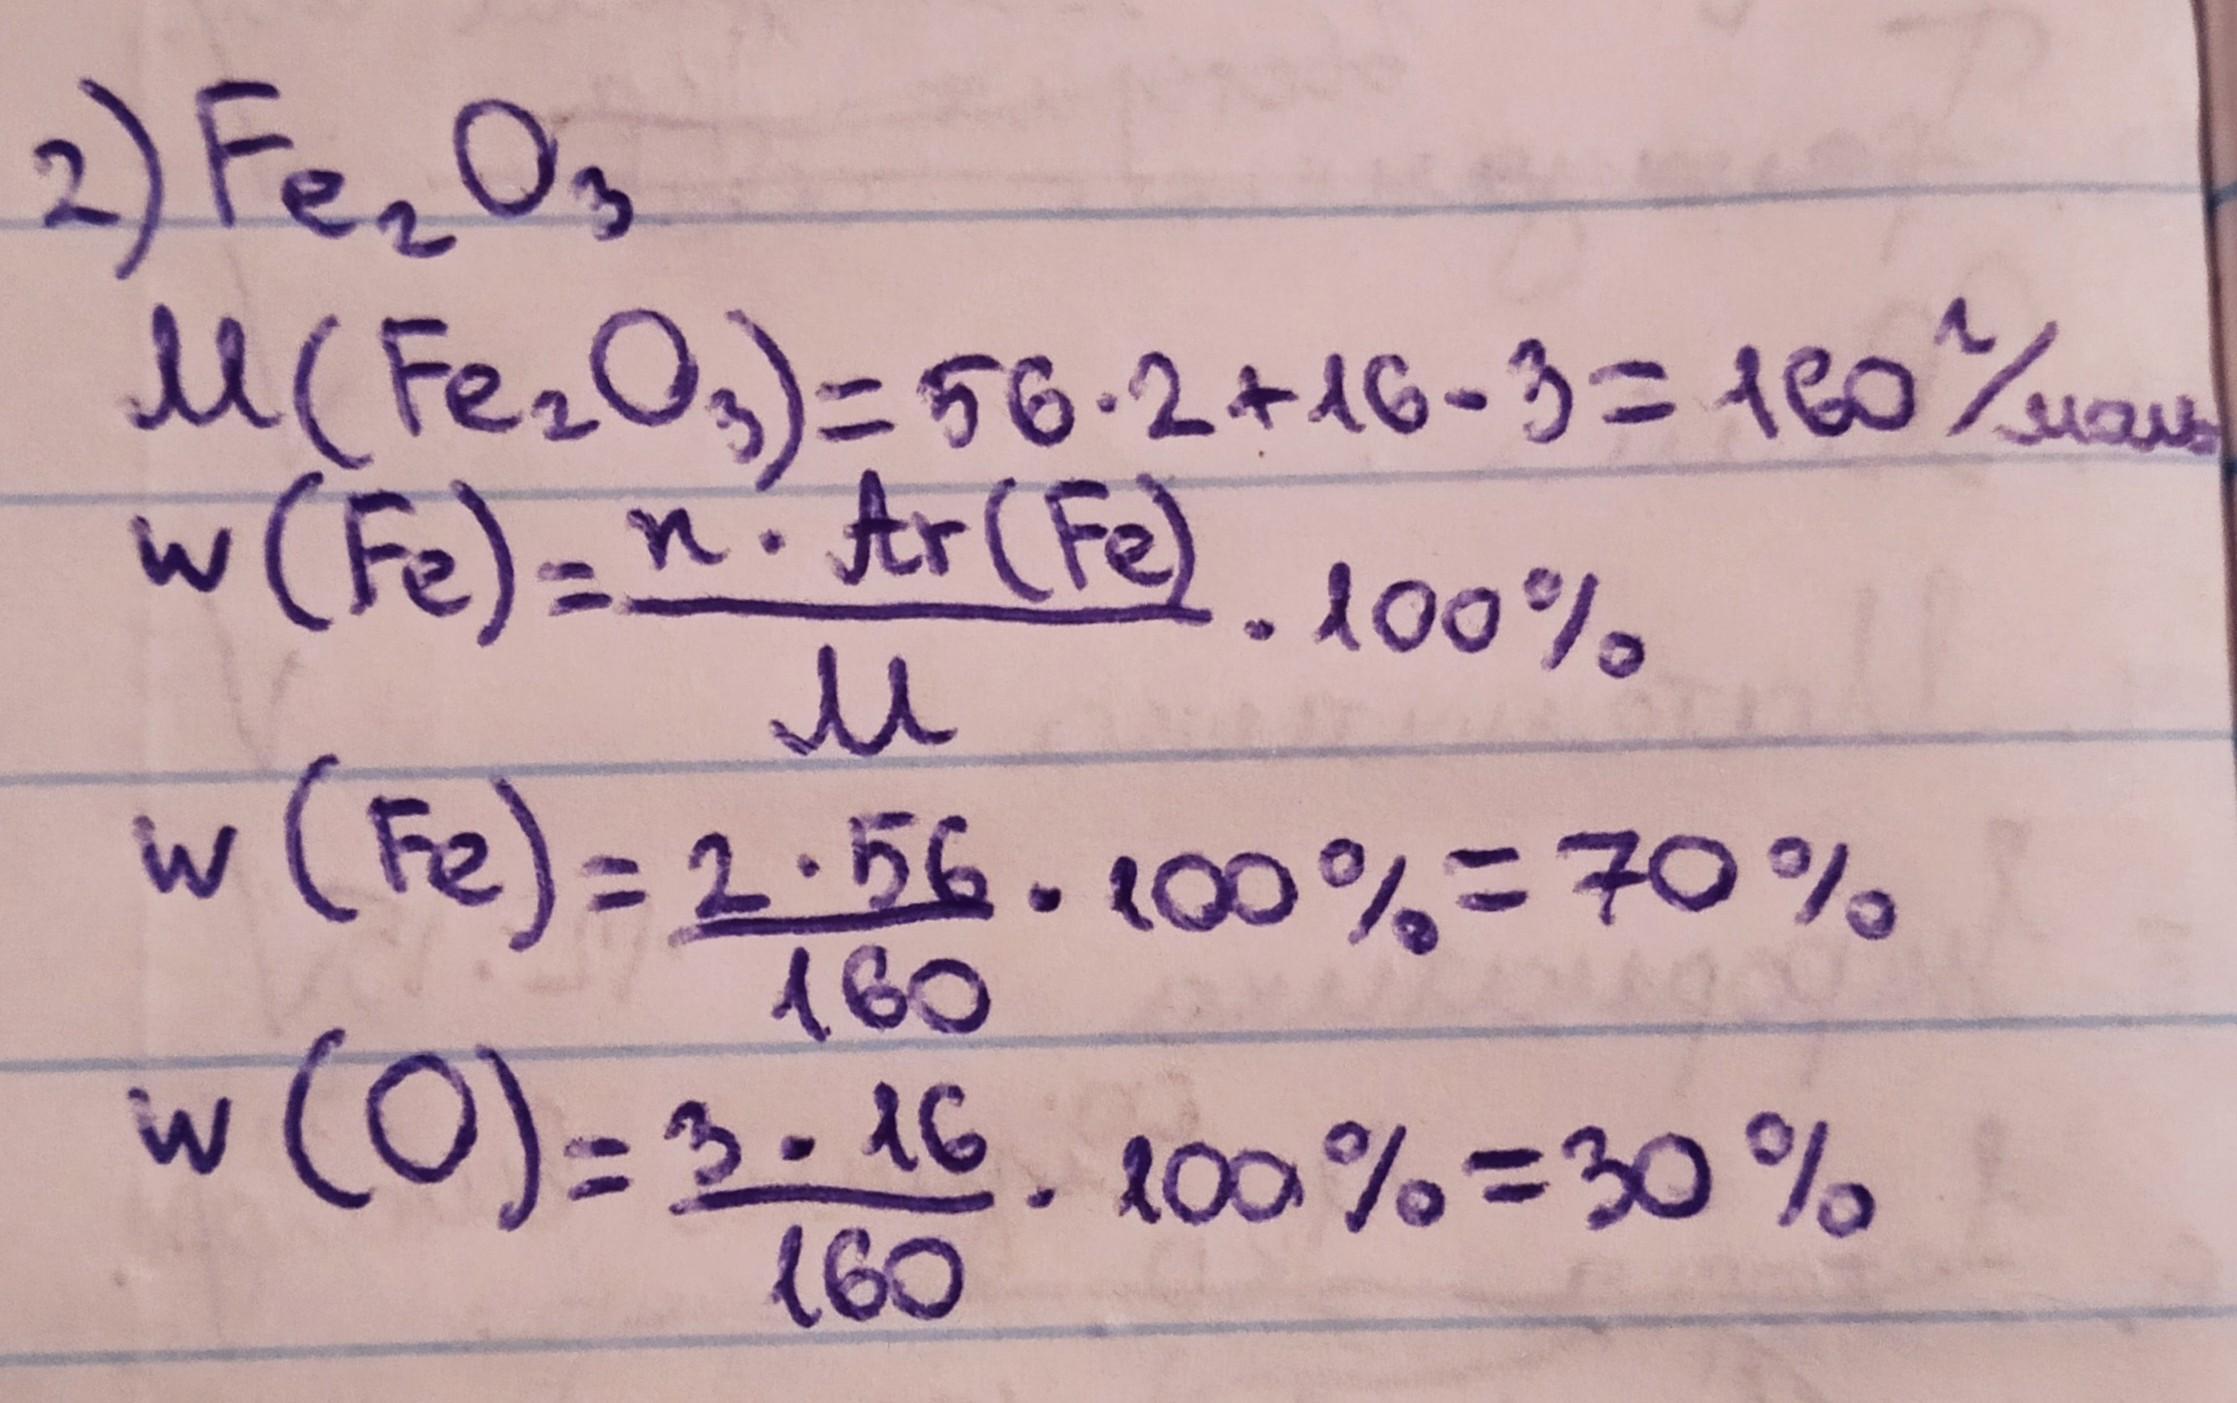 2) Fe₂O₃
M(Fe₂O₃)=56·2+16-3=160 г/моль
w(Fe)= n·Ar(Fe)/M ·100%
w(Fe)= 2·56/160 ·100%=70%
w(O)= 3·16/160 ·100%=30%